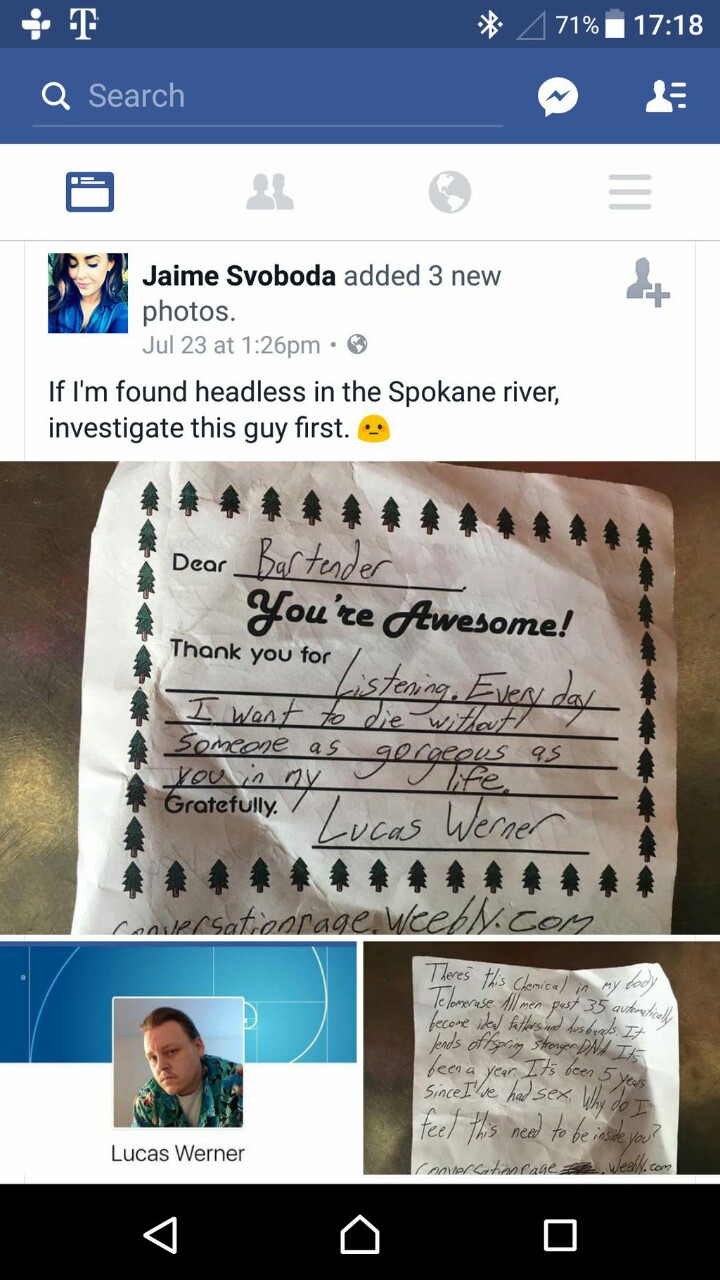 71% 17:18
Search
Jaime Svoboda added 3 new
photos.
Jul 23 at 1:26pm
If I'm found headless in the Spokane river,
investigate this guy first.
Dear Bartender
You're Awesome!
Thank you for Listening. Every day
I want to die without
someone as gorgeous as
you in my life.
Gratefully.
Lucas Werner
conversationrage.weebly.com
a
Lucas Werner
There's this Chemical in my body
Telomerase. All men past 35 automatically
become ideal fathers and husbands. It
lends offspring stronger DNA. It's
been a year. It's been 5 years
since I've had sex. Why do I
feel this need to be inside you?
conversationrage .weebly.com